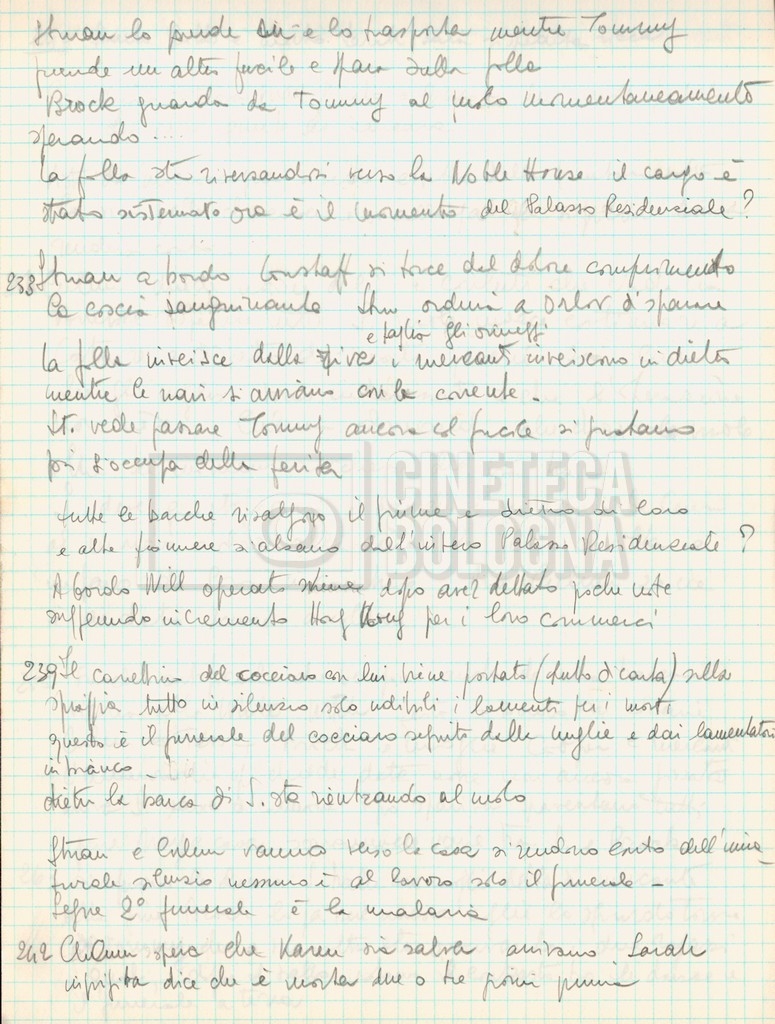 Struan lo prende su e lo trasporta mentre Tommy
prende un altro fucile e spara sulla folla
Brock guarda da Tommy al molo momentaneamente
sperando ....
la folla sta riversandosi verso la Noble House il cargo è
stato sistemato ora è il momento del Palazzo Residenziale?
233 Struan a bordo si torce dal dolore comprimendo
la coscia sanguinante Stru ordina a Orlov di sparare
e taglia gli ormeggi
la folla inveisce dalla riva i mercanti inveiscono indietro
mentre le navi si avviano con la corrente.
St. vede passare Tommy ancora col fucile si guardano
poi s'occupa della ferita
CINETECA
BOLOGNA
tutte le barche risalgono il fiume e dietro di loro
e alte fiamme s'alzano dall'intero Palazzo Residenziale?
A bordo Will operato dopo aver dettato poche note
suggerendo incremento Hong Kong per i loro commerci
239 Il carrettino del cocciaro con lui viene portato (tutto di carta) sulla
spiaggia tutto in silenzio solo udibili i lamenti per i morti
questo è il funerale del cocciaro seguito dalla moglie e dai lamentatori
in bianco.
dietro la barca di S. sta rientrando al molo
Struan e Culum vanno verso la casa si rendono conto dell'inna-
turale silenzio nessuno è al lavoro solo il funerale -
Segue 2° funerale è la malaria
242 spera che Karen sia salva arrivano Sarah
dice che è morta due o tre giorni prima